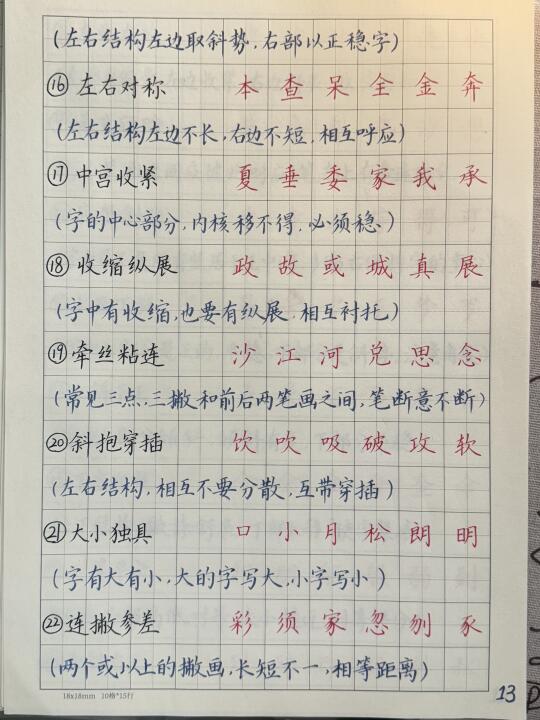 (左右结构左边取斜势,右部以正稳字)
⑯左右对称 本 查 呆 全 金 奔
(左右结构左边不长,右边不短,相互呼应)
⑰中宫收紧 夏 垂 委 家 我 承
(字的中心部分,内核移不得,必须稳)
⑱收缩纵展 政 故 或 城 真 展
(字中有收缩,也要有纵展,相互衬托)
⑲牵丝粘连 沙 江 河 兑 思 念
(常见三点,三撇和前后两笔画之间,笔断意不断)
⑳斜抱穿插 饮 吹 吸 破 攻 软
(左右结构,相互不要分散,互带穿插)
㉑大小独具 口 小 月 松 朗 明
(字有大有小,大的字写大,小字写小)
㉒连撇参差 彩 须 家 忽 刎 豕
(两个或以上的撇画,长短不一,相等距离)
18x18mm 10格*15行
13